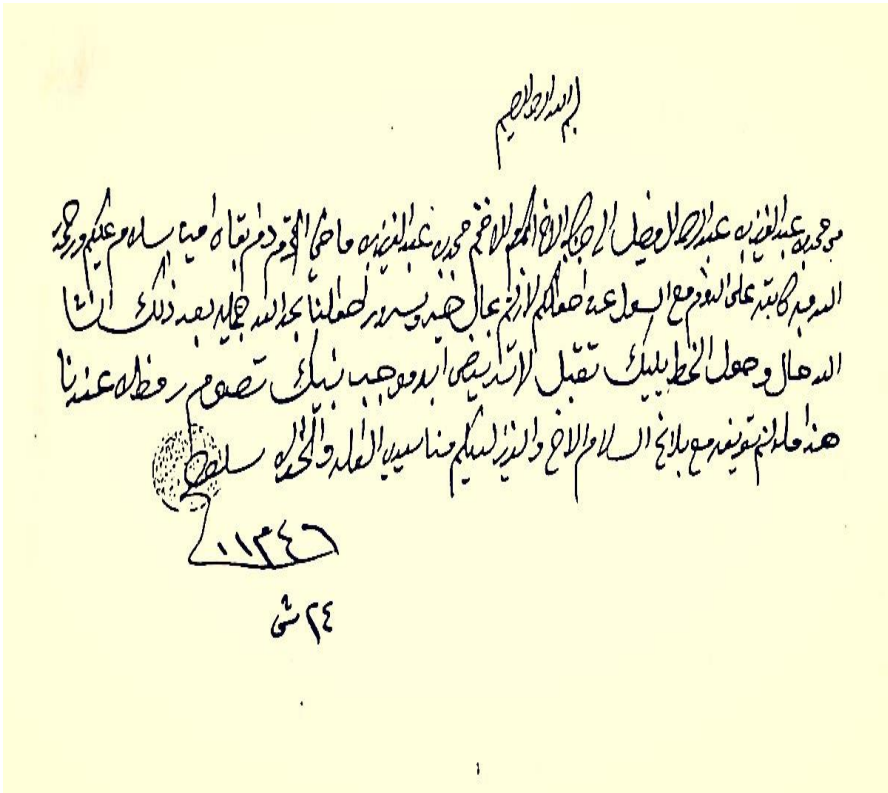 بسم الله الرحمن الرحيم
من محمد بن عبدالعزيز بن عبدالرحمن ال فيصل الى جناب الاخ المكرم الافخم محمد بن عبدالعزيز بن ماضي المحترم دام بقاه امين سلام عليكم ورحمة
الله وبركاته على الدوام مع السؤال عن احوالكم لازلتم بحال خير وسرور احوالنا بحمد الله جميله بعد ذلك انشا
الله حال وصول الخط يليك تقبل لا تدير نيتك تصوم رمظان عندنا
هذا ما لزم تعريفه مع بلاغ السلام الاخ والعزيز لديكم منا سيدي الوالد والاخوان سلام
١١ ١٣٤٦
٢٤ ش